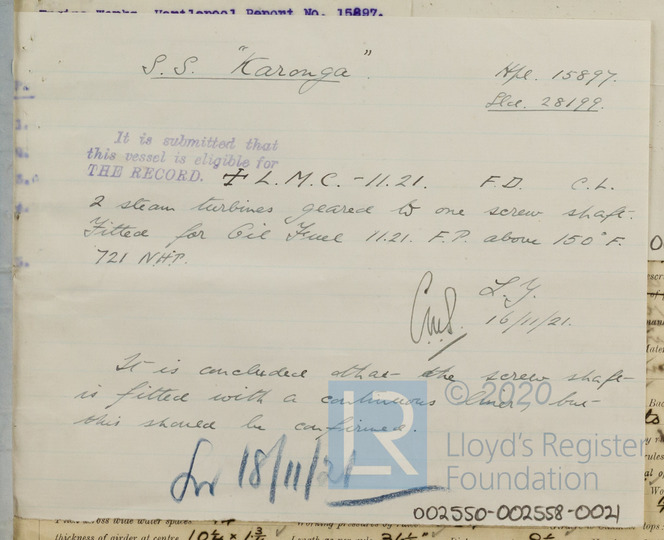 Hartlepool Report No. 15897.
S.S. "Karonga".
Hpl. 15897.
Sld. 28199.
It is submitted that
this vessel is eligible for
THE RECORD. ✠ L.M.C. - 11.21. F.D. C.L.
2 steam turbines geared to one screw shaft.
Fitted for Oil Fuel 11.21. F.P. above 150°F.
721 NHP.
16/11/21.
It is concluded that the screw shaft
is fitted with a continuous liner, but
this should be confirmed.
18/11/21
© 2020
LR
Lloyd's Register
Foundation
002550-002558-0021
wide water spaces
thickness of girder at centre